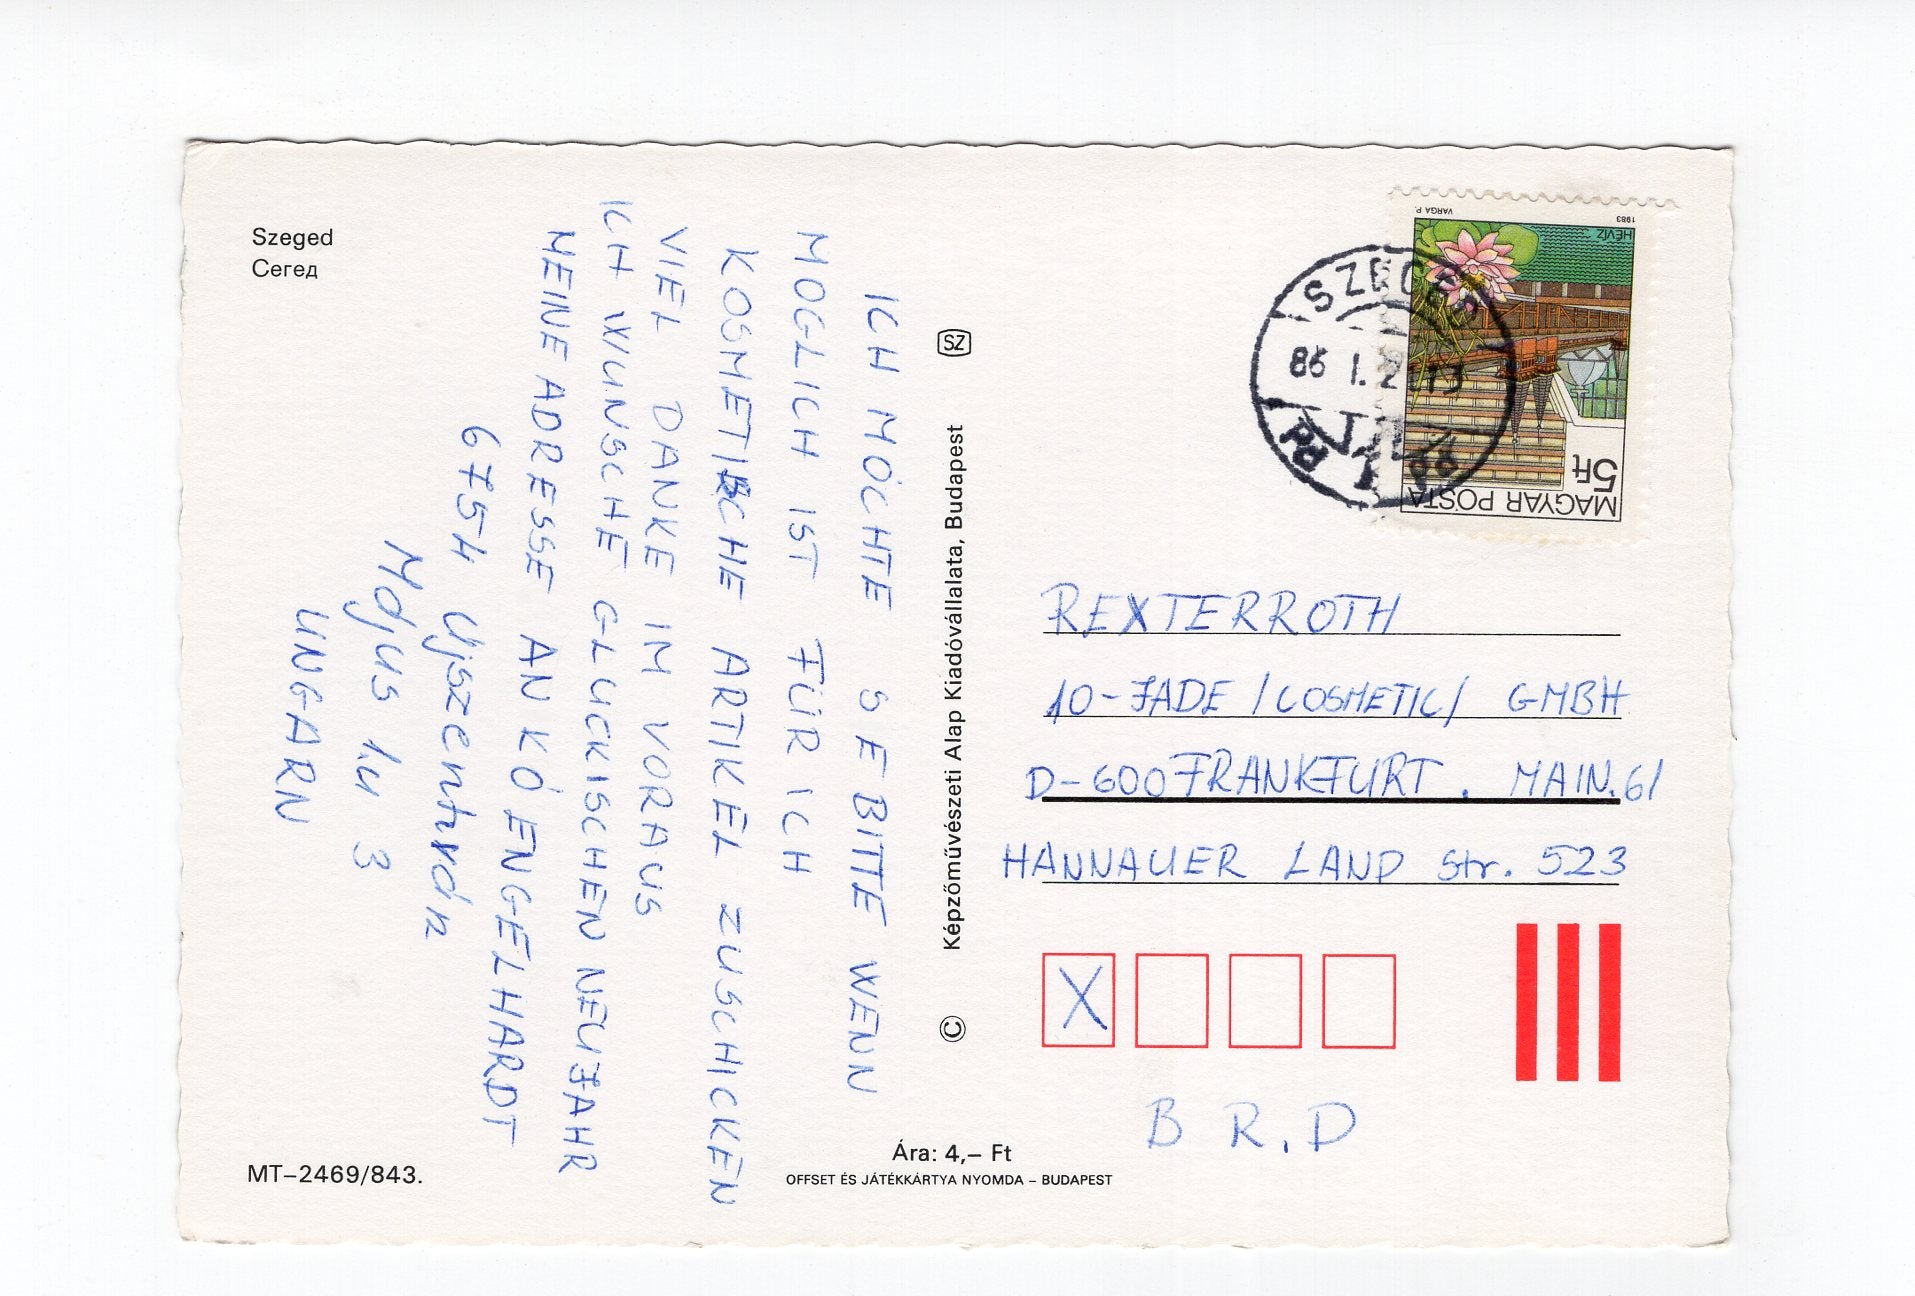 Szeged
Сегед
ICH MÖCHTE S E BITTE WENN
MOGLICH IST FÜR ICH
KOSMETISCHE ARTIKEL ZUSCHICKEN
VIEL DANKE IM VORAUS
ICH WUNSCHE GLUCKISCHEN NEUJAHR
MEINE ADRESSE AN KÓ ENGELHARDT
6754 Újszentiván
Május 1u 3
UNGARN
MT–2469/843.
SZ
© Képzőművészeti Alap Kiadóvállalata, Budapest
Ára: 4,– Ft
OFFSET ÉS JÁTÉKKÁRTYA NYOMDA – BUDAPEST
1983 VARGA P.
HÉVÍZ
5Ft
MAGYAR POSTA
SZEGED
86 1.2
REXTERROTH
10-JADE /COSMETIC/ GMBH
D-600 FRANKFURT . MAIN.61
HANNAUER LAND Str. 523
X
B R.D